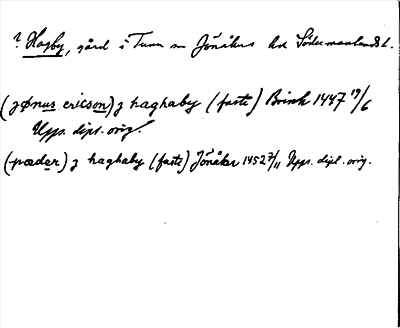 ? Hagby, gård i Tuna sn Jönåkers hd Södermanlands l.
(jønus ericson) j haghaby (faste) Brink 1447 19/6
Upps. dipl. orig.
(pædær) j haghaby (faste) Jönåker 1452 7/11 Upps. dipl. orig.